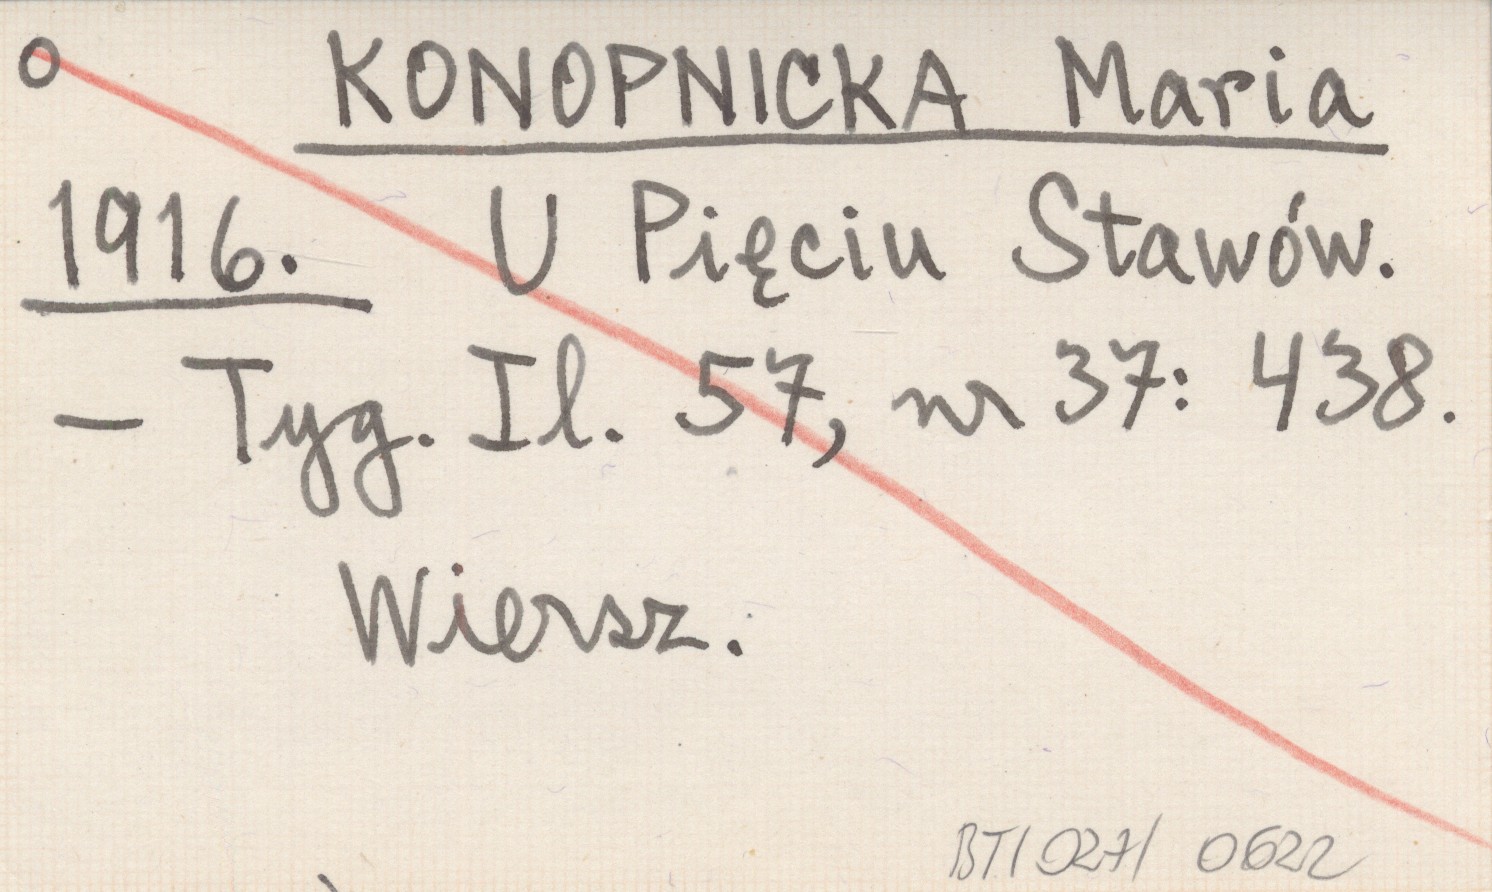 O KONOPNICKA Maria
1916. U Pięciu Stawów.
– Tyg. Il. 57, nr 37: 438.
Wiersz.
BT/027/ 0622